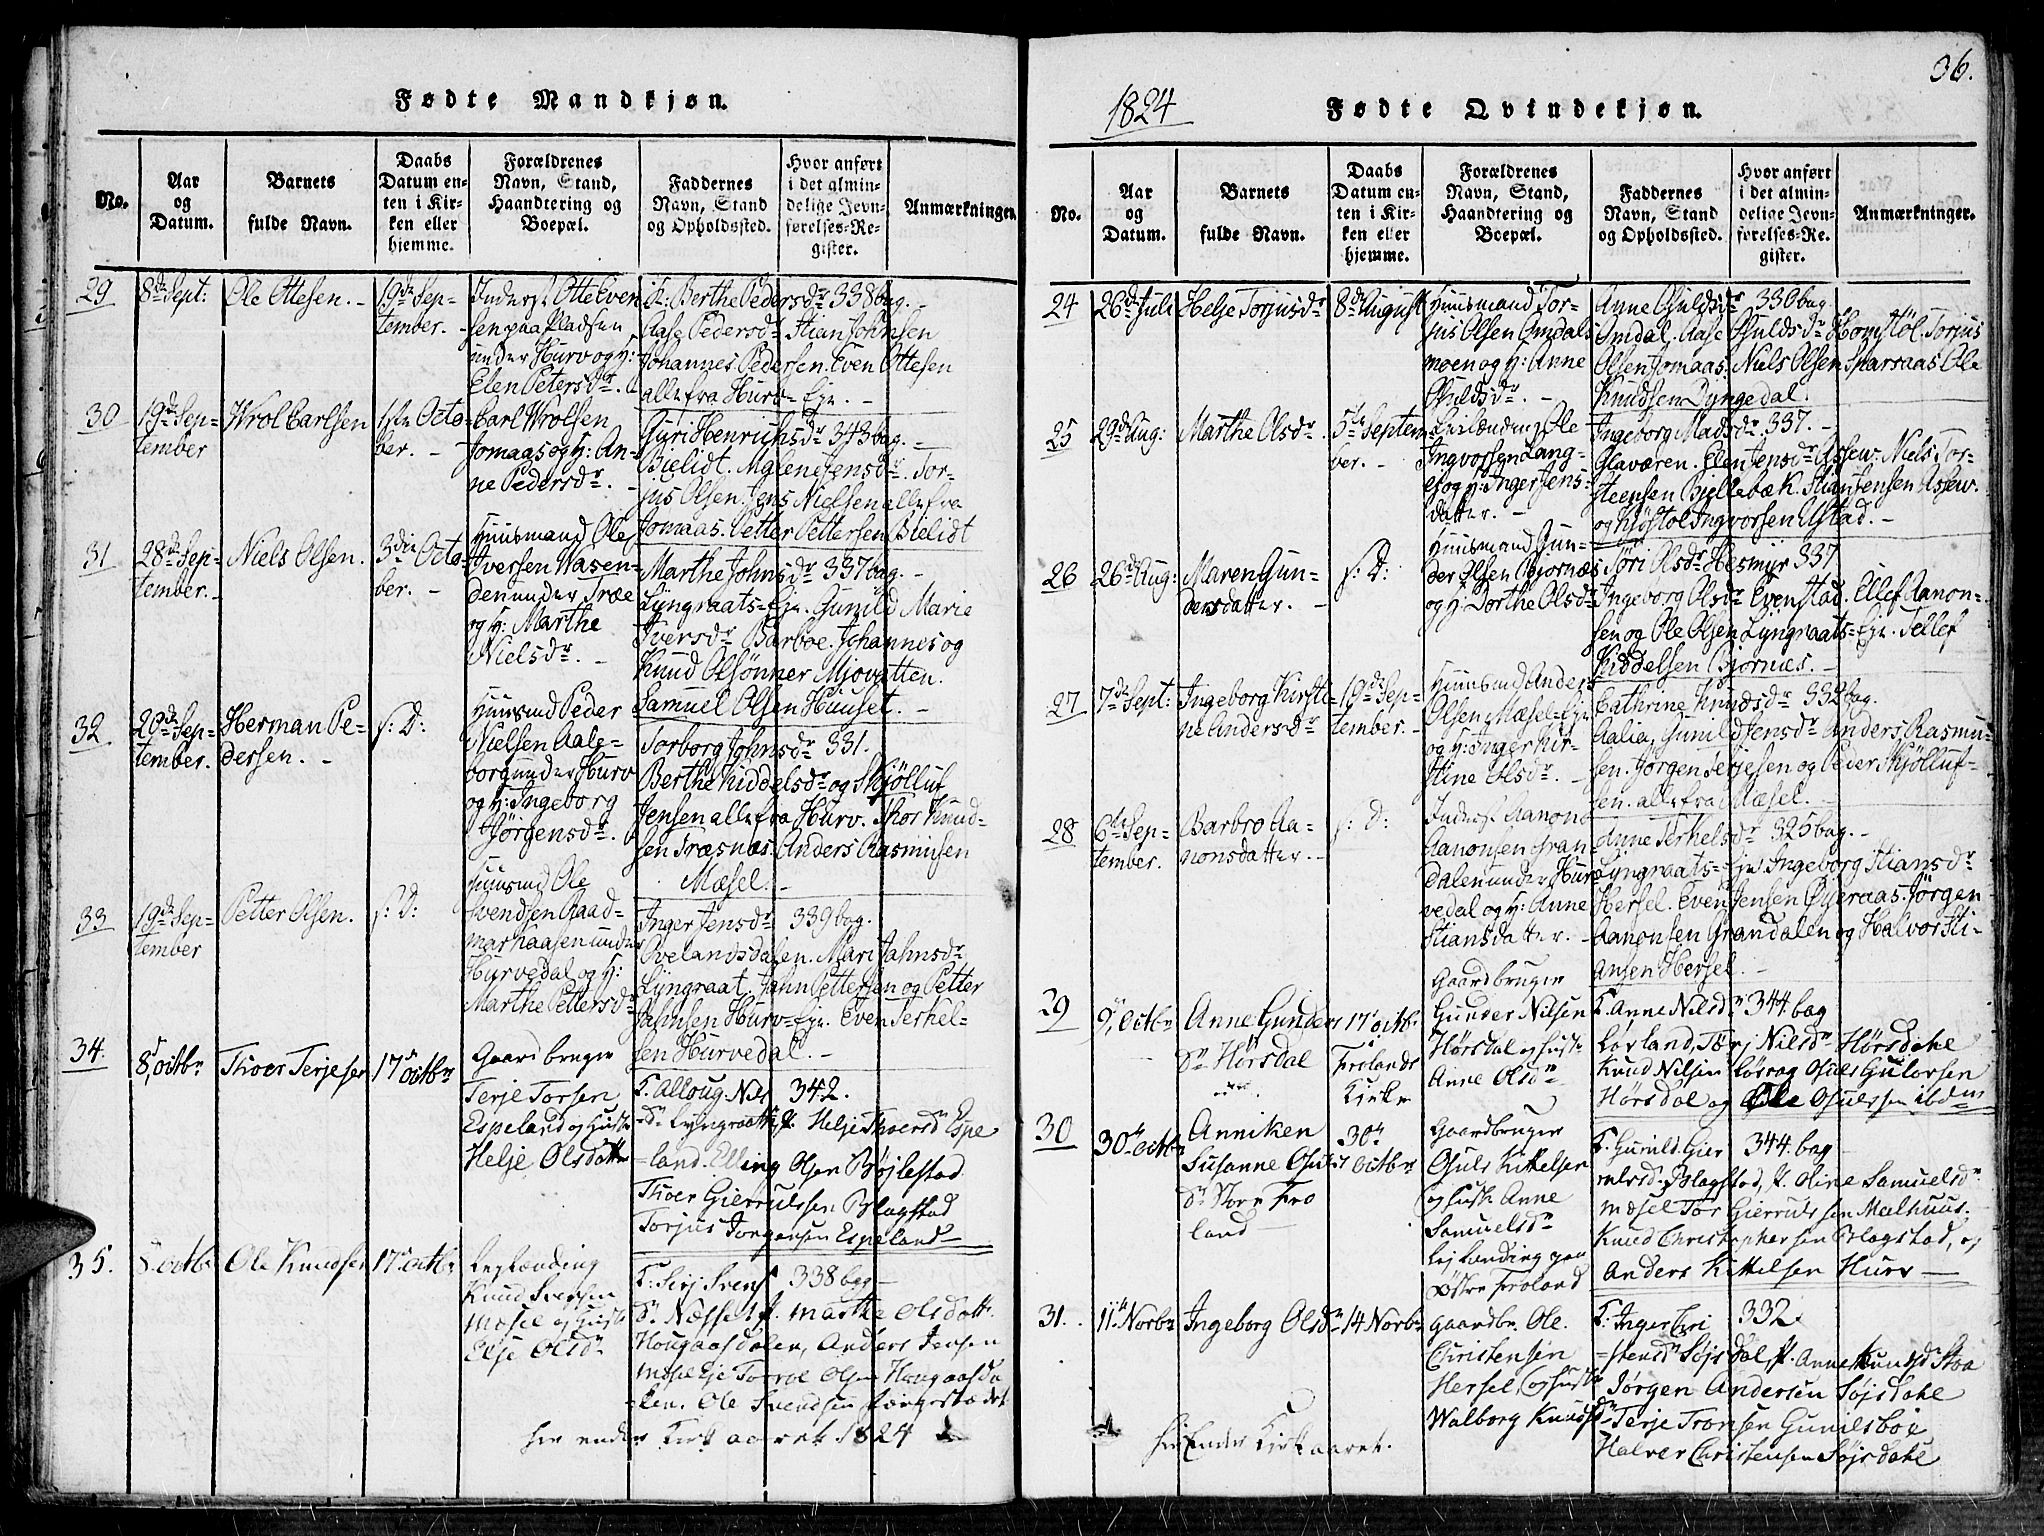 Fødte Mandkjøn.
No.
Aar og Datum.
Barnets fulde Navn.
Daabs Datum enten i Kirken eller hjemme.
Forældrenes Navn, Stand, Haandtering og Boepæl.
Faddernes Navn, Stand og Opholdssted.
Hvor anført i det almindelige Jevnførelses-Register.
Anmærkninger.
29
8de Sept:
Ole Ottesen.
19de Sep-
tember.
Inderst Otte Even
sen paa Pladsen
under Hurv og H:
Elen Petersdr.
K: Berthe Pedersdr 338 bag.
Aase Pedersdr Stian Johnsen
Johannes Pedersen. Even Ottesen
alle fra Hurv-Eje.
30
19de Sep-
tember
Wrol Carlsen
1ste Octo-
ber.
Carl Wrolsen
Jomaas og H: An-
ne Pedersdr.
Guri Henrichsdr 343 bag.
Bielidt. Malene Jensdr. Tor-
jus Olsen. Jens Nielsen alle fra
Jomaas. Petter Pettersen Bielidt
31
28de Sep-
tember.
Niels Olsen.
3die Octo-
ber.
Huusmand Ole
Iversen Wasen-
den under Træe
og H: Marthe
Nielsdr.
Marthe Johnsdr 337 bag.
Lyngraats-Eje. Gunild Marie
Iversdr Barboe. Johannes og
Knud Olsønner Mjovatten.
Samuel Olsen Huuset.
32
20de Sep-
tember.
Herman Pe-
dersen.
s: D:
Huusmd Peder
Nielsen Aale-
borg under Hurv
og H: Ingeborg
Jørgensdr.
Torborg Johnsdr 331.
Berthe Kiddelsdr og Skjølluf
Jensen alle fra Hurv. Thor Knud-
sen Træsnæs. Anders Rasmusen
Mæsel.
33
19de Sep-
tember
Petter Olsen.
s: D:
Huusmd Ole
Svendsen Raad-
markaasen under
Hurvedal og H:
Marthe Pettersdr
Inger Jensdr 339 bag.
Ovelandsdalen. Mari Jahnsdr
Lyngraat. Jahn Pettersen og Petter
Jahnsen Hurv-Eje. Even Terkel-
sen Hurvedal.
34.
8, octbr
Thoer Terjesen
17 octbr
Gaardbruger
Terje Torsen
Espeland og Hustr
Helje Olsdatt
F. Alloug Nils 342.
dr Lyngraath, P. Helje Thoersdr Espe
land. Elling Olsen Bøjlestad
Thoer Gierrulssen Blagstad
Torjus Jorgensen Espeland
35.
8. octbr
Ole Knudsen
17 octbr
Leylænding
Knud Svensen
Mæsel og Hustr
Else Olsdr
F. Sirj Svens 338 bag
dr Næssel P. Marthe Olsdatt
Hougaasdalen, Anders Jensen
Mæsel Eje Torvel Olsen Hougaasda
len. Ole Svendsen
her ender Kirkaaret 1824
1824
Fødte Qvindekjøn.
36.
No.
Aar og Datum.
Barnets fulde Navn.
Daabs Datum enten i Kirken eller hjemme.
Forældrenes Navn, Stand, Haandtering og Boepæl.
Faddernes Navn, Stand og Opholdssted.
Hvor anført i det almindelige Jevnførelses-Register.
Anmærkninger.
24
26de Juli
Helje Torjusdr
8de August
Huusmand Tor-
jus Olsen Omdals
moen og H: Anne
Ovuldsdr.
Anne Ovuldsdr 330 bag
Omdal. Aase Ovuldsdr Homstøl. Torjus
Olsen Jomaas. Niels Olsen Sparsaas Ole
Knudsen Dyngedal.
25
29de Aug:
Marthe Olsdr.
5te Septem
ber.
Leilænding Ole
Ingvorsen Lang-
og H: Inger Jens-
datter.
Ingeborg Madsdr 337.
Glaværen. Elen Jensdr Assew. Niels Tor-
steensen Bjellebæk. Stian Jensen Assew.
og Kjøstol Ingvorsen Elstad.
26
26de Aug:
Maren Gun-
dersdatter.
s: D:
Huusmand Gun-
der Olsen Bjornæs
og H: Dorthe Olsdr
Tøri Olsdr Hesmyr 337
Ingeborg Olsdr Evenstad. Ellef Aanon-
sen og Ole Olsen Lyngraats-Eje. Tellef
Kiddelsen Bjornæs.
27
7de Sept:
Ingeborg Kirsti-
ne Andersdr
19de Sep-
tember.
Huusmd Anders
Olsen Mæsel-Eje
og H: Inger Kir-
stine Olsdr.
Cathrine Knudsdr 332 bag.
Aalia, Gunild Jensdr Anders Rasmu-
sen. Jørgen Terjesen og Peder Skjølluf-
sen. alle fra Mæsel.
28
6te Sep-
tember.
Barbro Aa-
nonsdatter.
s: D:
Inderst Aanond
Aanonsen Gran-
dalen under Hur
vedal og H: Anne
Stiansdatter.
Anne Terkelsdr 325 bag.
Lyngraats-Eje Ingeborg Stiansdr
Hersel. Even Jensen Øseraas. Jørgen
Aanonsen Grandalen og Halvor Sti-
ansen Hersel.
29
9, octbr
Anne Gunders
dr Hørsdal
17 octbr
Frolands
Kirke
Gaardbruger
Gunder Nilsen
Hørsdal og Hustr
Anne Olsdr
F. Anne Nilsdr 344 bag
Lovland, Tørj Nilsdr Hørsdale
Knud Nilsen Løvrag Osuls Gulovsen
Hørsdal og Ole Osulssen ibdm
30
30 octbr
Anniken
Susanne Osuls
dr Store Fro
land
30
octbr
Gaardbruger
Osuls Kittelsen
og Hustr Anne
Samuelsdr
Lejlending paa
østre Froland
F. Gunild Gier 344. bag
rulsdr Blagstad, P. Oline Samuelsdr
Mæsel Tor Gierrulssen Malhuus.
Knud Christophersen Blagstad, og
Anders Kittelsen Hurv
31.
11 Novbr
Ingeborg Olsdr
14 Novbr
Gaardbr. Ole
Christensen
Hersel, og Hustr
Walborg Knudsdr
F. Inger Cri 332
stensdr Søjsdal, P. Anne Knudsdr Stoa
Jørgen Andersen Søjsdahl
Terje Tromsen Gunilsboe
Halver Christensen Søjsdahl
her Ender Kirkaaret.